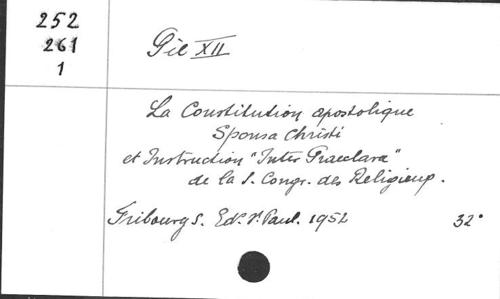 252
261
1
Pie XII
La Constitution apostolique
Sponsa Christi
et Instruction "Inter Praeclara"
de la S. Congr. des Religieux.
Fribourg S. Ed. St Paul. 1952
32°